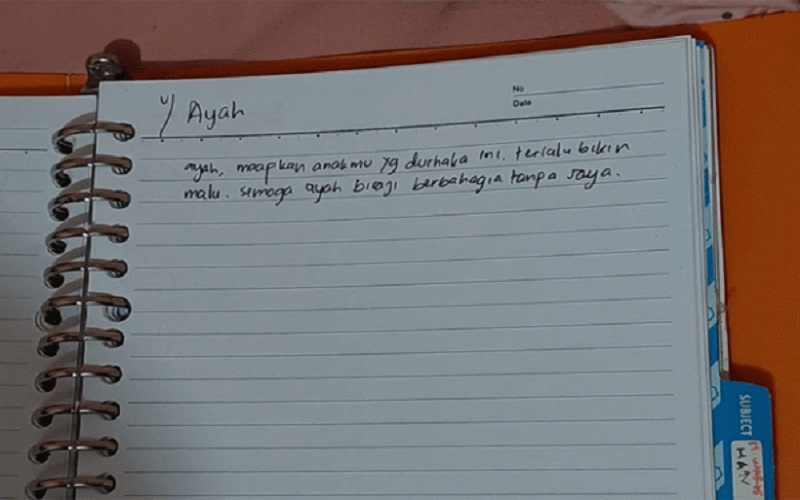 No
Date
u/ Ayah
ayah, maapkan anakmu yg durhaka ini. terlalu bikin
malu. semoga ayah bisa berbahagia tanpa saya.
SUBJECT
MAN